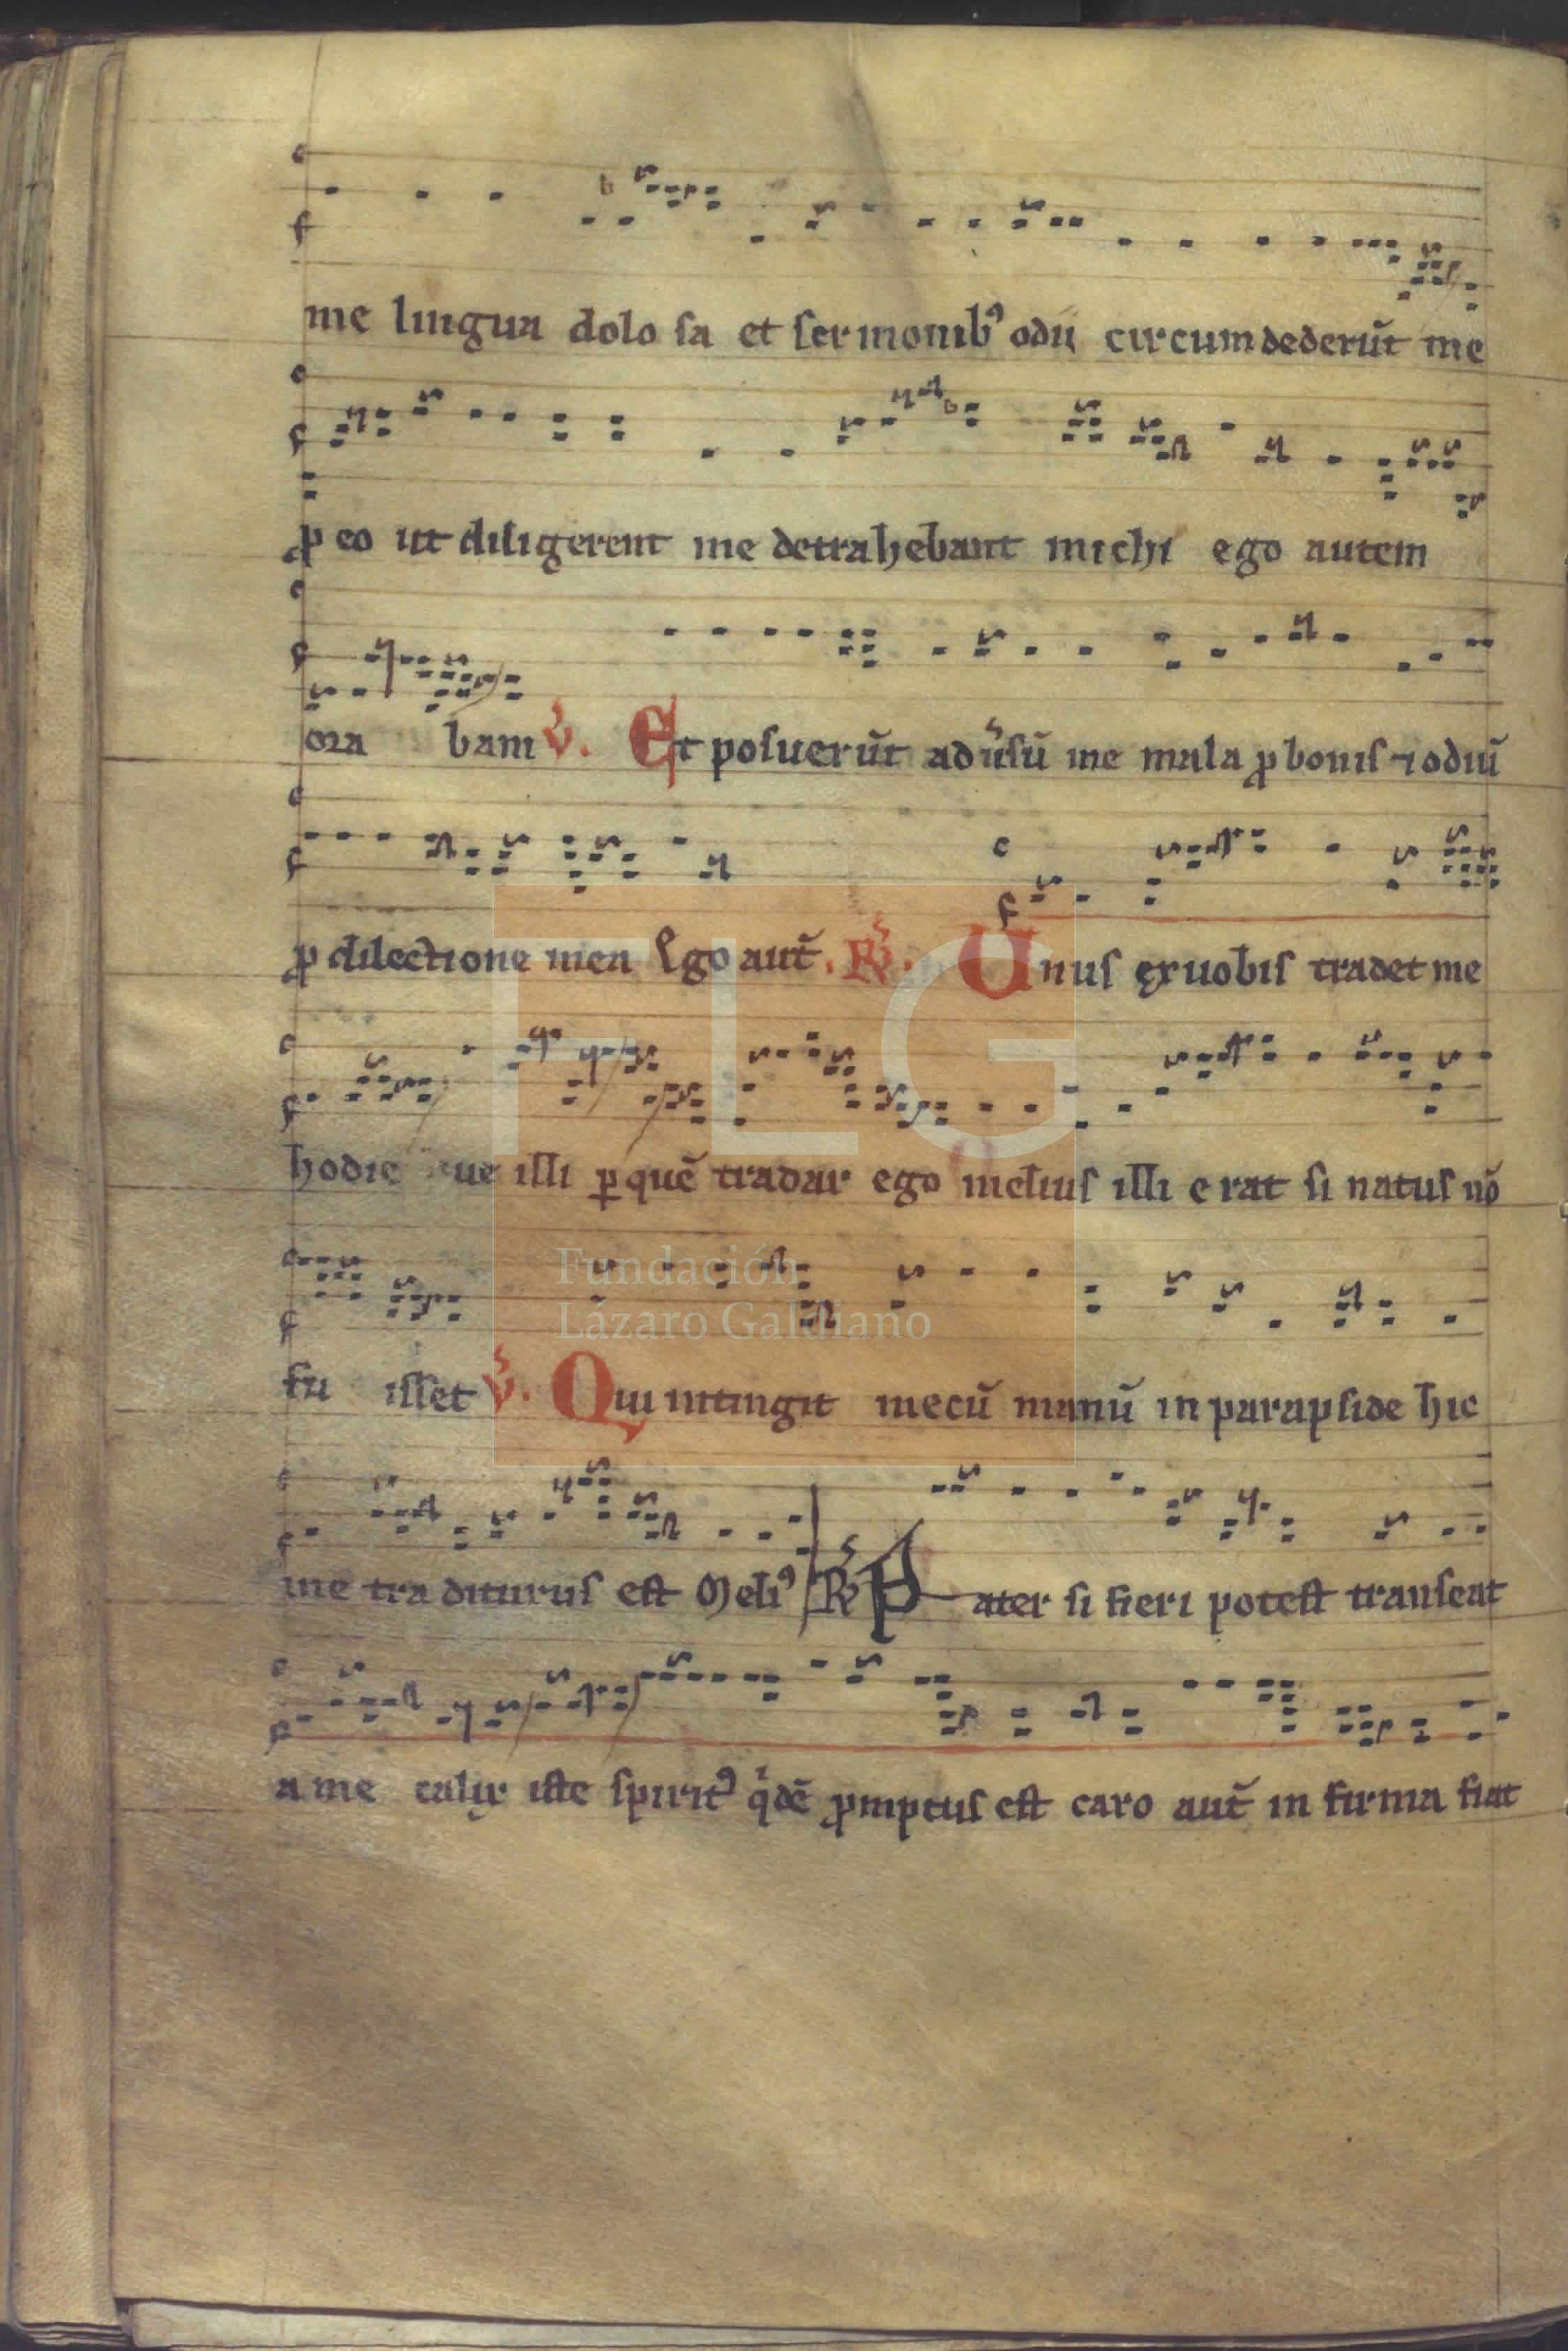 me lingua dolo sa et sermonibꝰ odii circumdederūt me
ꝓ eo ut diligerent me detrahebant michi ego autem
ora bam ℣. Et posuerūt adūsū me mala ꝓ bonis ⁊ odiū
ꝓ dilectione mea Ego aut̄. ℟. Unus ęx uobis tradet me
hodie ue illi ꝑ quē tradar ego melius illi erat si natus nō
fu isset ℣. Qui intingit mecū manū in parapside hic
me traditurus est Meliꝰ ℟ Pater si fieri potest transeat
a me calix iste spiritꝰ qͥdē ꝓmptus est caro aut̄ in firma fiat
FLG
Fundación
Lázaro Galdiano